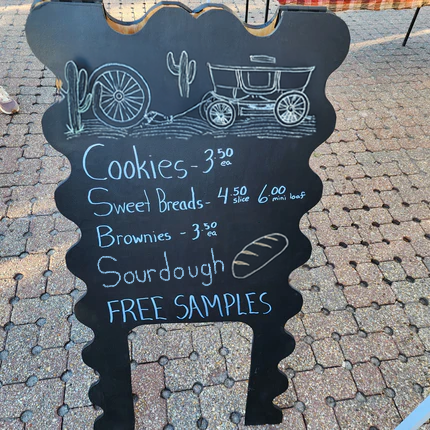 Cookies - 3.50 ea
Sweet Breads - 4.50 slice 6.00 mini loaf
Brownies - 3.50 ea
Sourdough
FREE SAMPLES